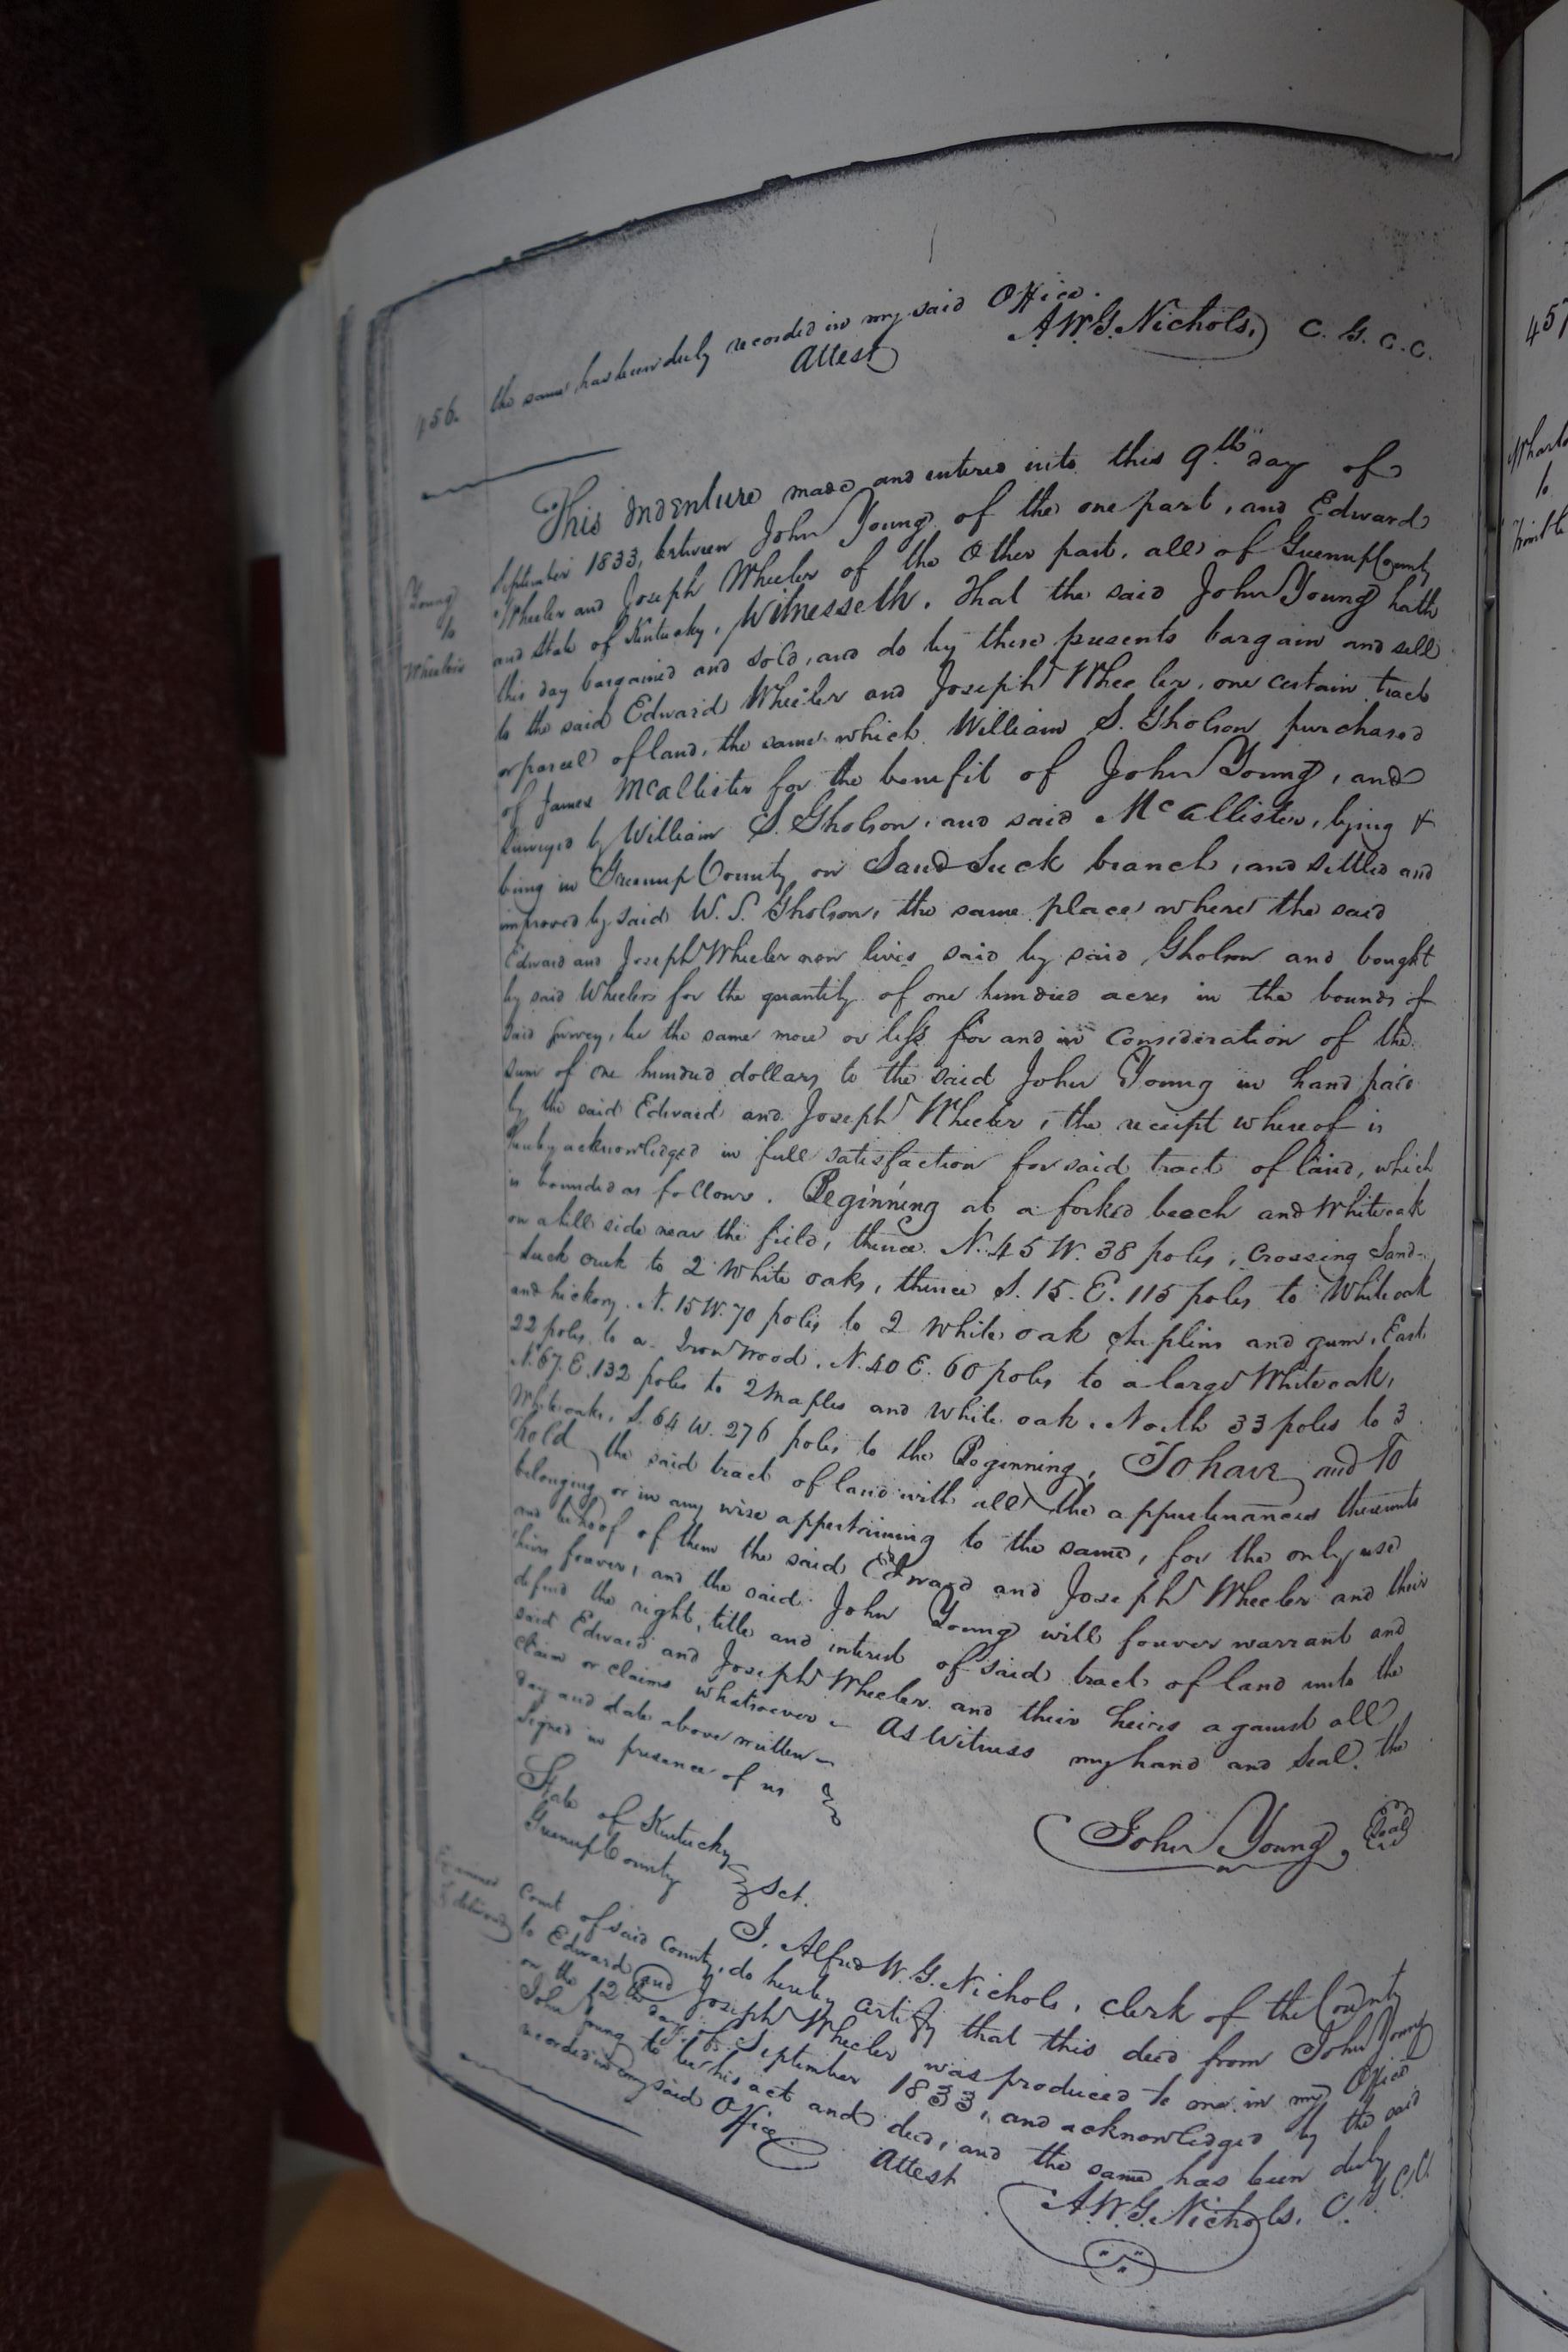 456. the same has been duly recorded in my said Office.
Attest A. W. G. Nichols, C. G. C. C.
Young
to
Wheelers
This Indenture made and entered into this 9th day of
September 1833, between John Young of the one part, and Edward
Wheeler and Joseph Wheeler of the Other part, all of Greenup County
and State of Kentucky, Witnesseth. That the said John Young hath
this day bargained and sold, and do by these presents bargain and sell
to the said Edward Wheeler and Joseph Wheeler, one certain tract
or parcel of land, the same which William S. Gholson purchased
of James McAllister for the benefit of John Young, and
Surveyed by William S. Gholson, and said McAllister, lying &
being in Greenup County on Sand Suck branch, and settled and
improved by said W. S. Gholson, the same place where the said
Edward and Joseph Wheeler now lives said by said Gholson and bought
by said Wheelers for the quantity of one hundred acres in the bounds of
said survey, be the same more or less for and in consideration of the
sum of one hundred dollars to the said John Young in hand paid
by the said Edward and Joseph Wheeler, the receipt whereof is
hereby acknowledged in full satisfaction for said tract of land, which
is bounded as follows. Beginning at a forked beech and White oak
on a hill side near the field, thence N. 45 W. 38 poles, crossing Sand-
Suck creek to 2 White oaks, thence S. 15. E. 115 poles to White oak
and hickory. N. 15 W. 70 poles to 2 white oak Saplins and gum, East
22 poles to a Iron Wood. N. 40 E. 60 poles to a large White oak,
N. 67. E. 132 poles to 2 maples and white oak. North 33 poles to 3
White oaks, S. 64 W. 276 poles to the Beginning, To have and To
hold the said tract of land with all the appurtenances thereunto
belonging or in any wise appertaining to the same, for the only use
and behoof of them the said Edward and Joseph Wheeler and their
heirs forever, and the said John Young will forever warrant and
defend the right, title and interest of said tract of land unto the
said Edward and Joseph Wheeler and their heirs against all
claim or claims whatsoever. As Witness my hand and Seal the
day and date above written
Signed in presence of us
John Young, Seal
State of Kentucky
Greenup County Sct.
Examined
& delivered
I, Alfred W. G. Nichols, Clerk of the County
Court of said County, do hereby certify that this deed from John Young
to Edward and Joseph Wheeler was produced to me in my Office
on the 12th day of September 1833, and acknowledged by the said
John Young to be his act and deed, and the same has been duly
recorded in my said Office.
Attest A. W. G. Nichols. C. G. C. C.
457
to